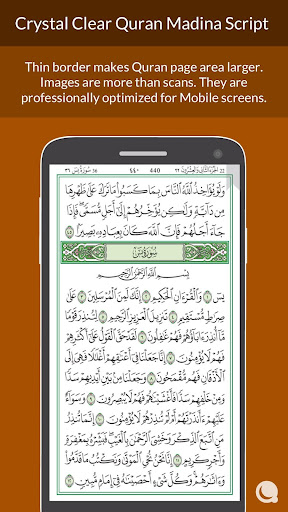 Crystal Clear Quran Madina Script
Thin border makes Quran page area larger.
Images are more than scans. They are
professionally optimized for Mobile screens.
22 الجزء الثاني والعشرون ٢٢ 440 ٤٤٠ 36 سورة يس ٣٦
وَلَوْ يُؤَاخِذُ ٱللَّهُ ٱلنَّاسَ بِمَا كَسَبُوا۟ مَا تَرَكَ عَلَىٰ ظَهْرِهَا
مِن دَآبَّةٍ وَلَٰكِن يُؤَخِّرُهُمْ إِلَىٰٓ أَجَلٍ مُّسَمًّى ۖ فَإِذَا
جَآءَ أَجَلُهُمْ فَإِنَّ ٱللَّهَ كَانَ بِعِبَادِهِۦ بَصِيرًۢا ٤٥
سُورَةُ يسٓ
بِسْمِ ٱللَّهِ ٱلرَّحْمَٰنِ ٱلرَّحِيمِ
يسٓ ١ وَٱلْقُرْءَانِ ٱلْحَكِيمِ ٢ إِنَّكَ لَمِنَ ٱلْمُرْسَلِينَ ٣ عَلَىٰ
صِرَٰطٍ مُّسْتَقِيمٍ ٤ تَنزِيلَ ٱلْعَزِيزِ ٱلرَّحِيمِ ٥ لِتُنذِرَ قَوْمًا
مَّآ أُنذِرَ ءَابَآؤُهُمْ فَهُمْ غَٰفِلُونَ ٦ لَقَدْ حَقَّ ٱلْقَوْلُ عَلَىٰٓ أَكْثَرِهِمْ
فَهُمْ لَا يُؤْمِنُونَ ٧ إِنَّا جَعَلْنَا فِىٓ أَعْنَٰقِهِمْ أَغْلَٰلًا فَهِىَ إِلَى
ٱلْأَذْقَانِ فَهُم مُّقْمَحُونَ ٨ وَجَعَلْنَا مِنۢ بَيْنِ أَيْدِيهِمْ سَدًّا
وَمِنْ خَلْفِهِمْ سَدًّا فَأَغْشَيْنَٰهُمْ فَهُمْ لَا يُبْصِرُونَ ٩ وَسَوَآءٌ
عَلَيْهِمْ ءَأَنذَرْتَهُمْ أَمْ لَمْ تُنذِرْهُمْ لَا يُؤْمِنُونَ ١٠ إِنَّمَا تُنذِرُ
مَنِ ٱتَّبَعَ ٱلذِّكْرَ وَخَشِىَ ٱلرَّحْمَٰنَ بِٱلْغَيْبِ ۖ فَبَشِّرْهُ بِمَغْفِرَةٍ
وَأَجْرٍ كَرِيمٍ ١١ إِنَّا نَحْنُ نُحْىِ ٱلْمَوْتَىٰ وَنَكْتُبُ مَا قَدَّمُوا۟
وَءَاثَٰرَهُمْ ۚ وَكُلَّ شَىْءٍ أَحْصَيْنَٰهُ فِىٓ إِمَامٍ مُّبِينٍ ١٢